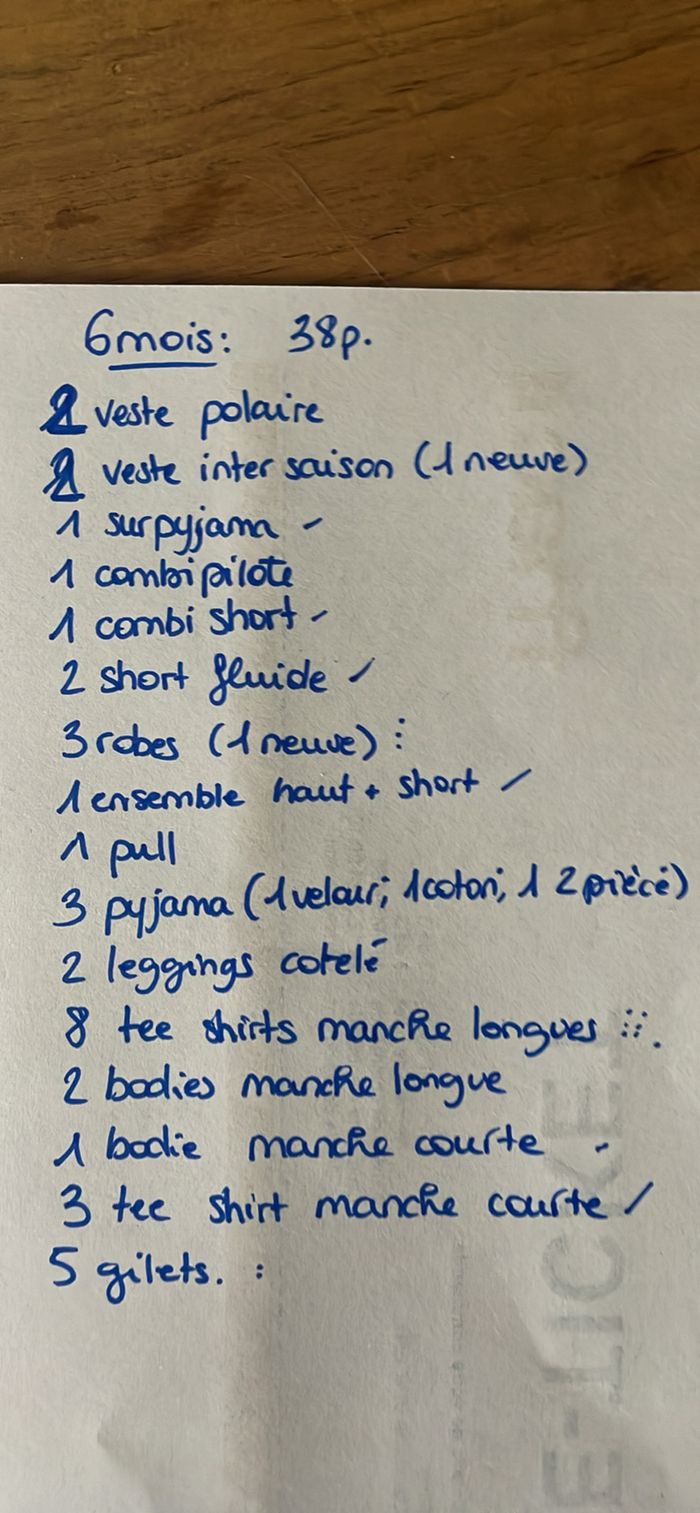 6mois: 38p.
2 veste polaire
2 veste inter saison (1 neuve)
1 surpyjama -
1 combi pilote
1 combi short -
2 short fluide /
3 robes (1 neuve) :
1 ensemble haut + short /
1 pull
3 pyjama (1 velour; 1 coton; 1 2 piècé)
2 leggings cotelé
8 tee shirts manche longues ::.
2 bodies manche longue
1 bodie manche courte -
3 tee shirt manche courte /
5 gilets. :
E-TICKET